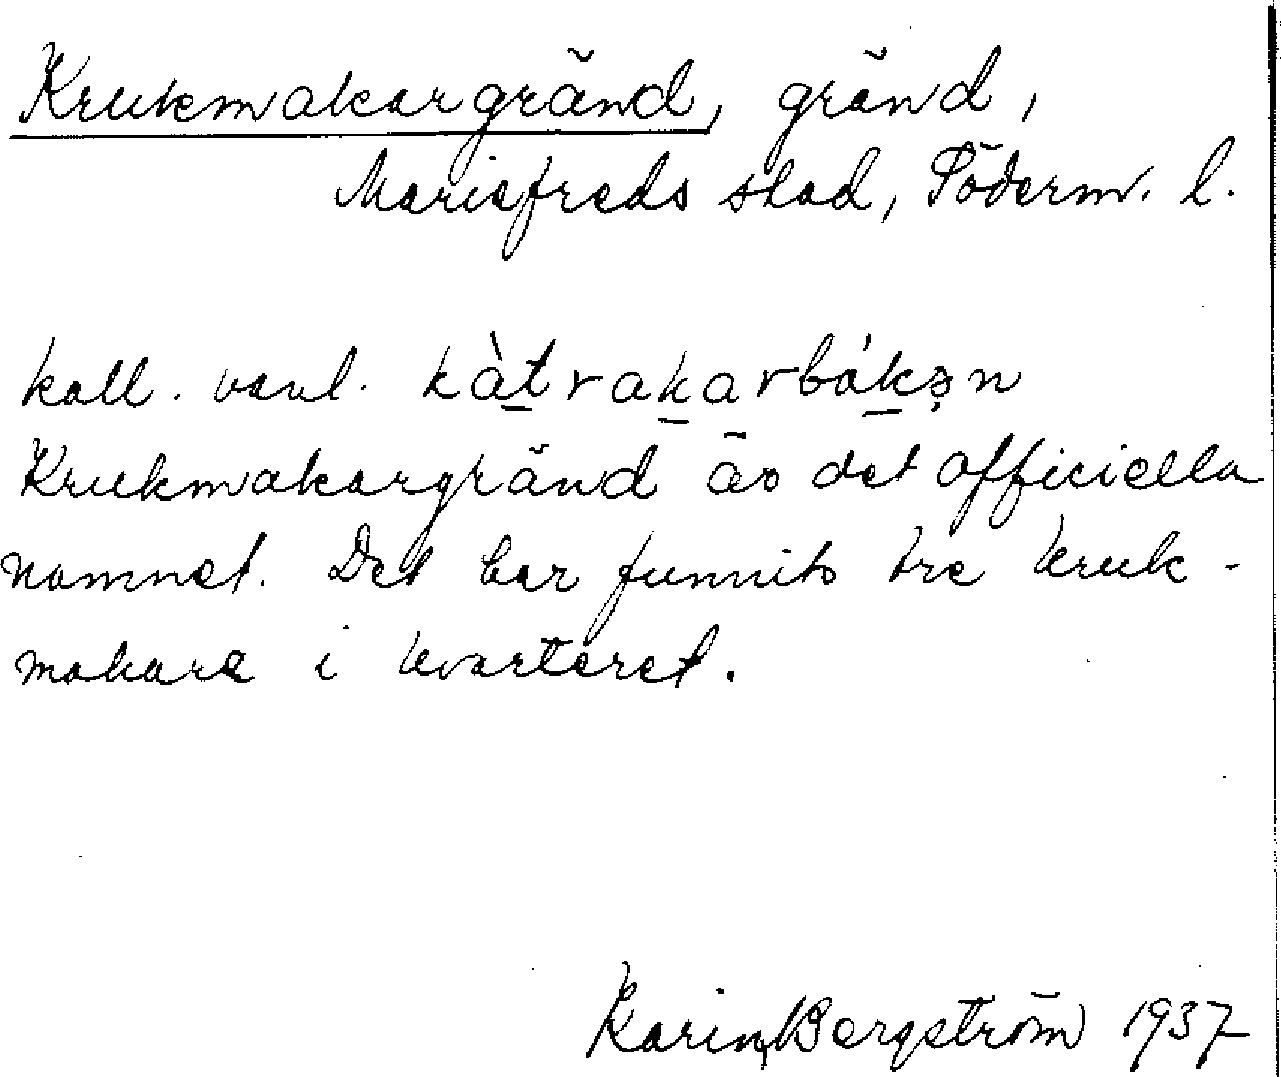 Krukmakargränd, gränd,
Mariefreds stad, Söderm. l.
kall. vanl. kàtrakarbákən
Krukmakargränd är det officiella
namnet. Det har funnits tre kruk-
makare i kvarteret.
Karin Bergström 1937